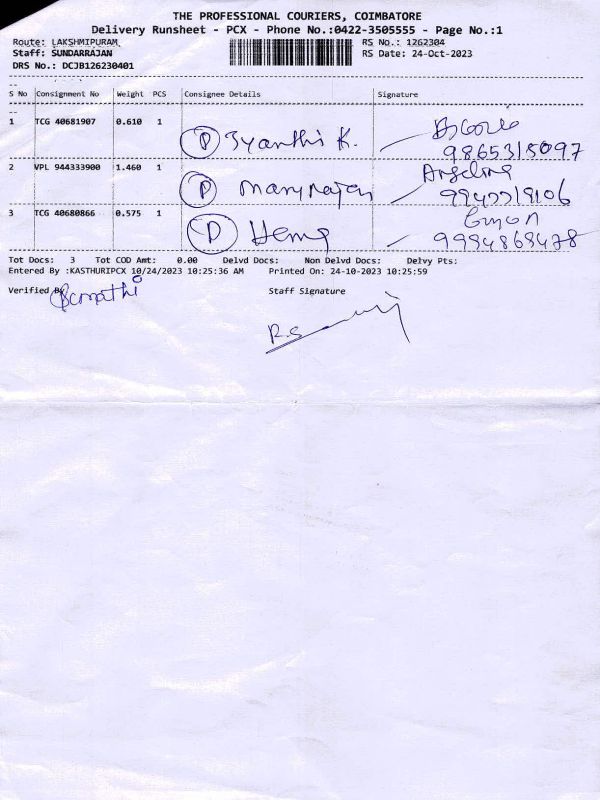 THE PROFESSIONAL COURIERS, COIMBATORE
Delivery Runsheet - PCX - Phone No.:0422-3505555 - Page No.:1
Route: LAKSHMIPURAM RS No.: 1262304
Staff: SUNDARRAJAN RS Date: 24-Oct-2023
DRS No.: DCJB126230401
S No Consignment No Weight PCS Consignee Details Signature
1 TCG 40681907 0.610 1 P Jyanthi K.
9865315097
2 VPL 944333900 1.460 1 P Maryrajan Angeline
3 TCG 40680866 0.575 1 D Hema
9994868478
Tot Docs: 3 Tot COD Amt: 0.00 Delvd Docs: Non Delvd Docs: Delvy Pts:
Entered By :KASTHURIPCX 10/24/2023 10:25:36 AM Printed On: 24-10-2023 10:25:59
Verified By Staff Signature
R.S